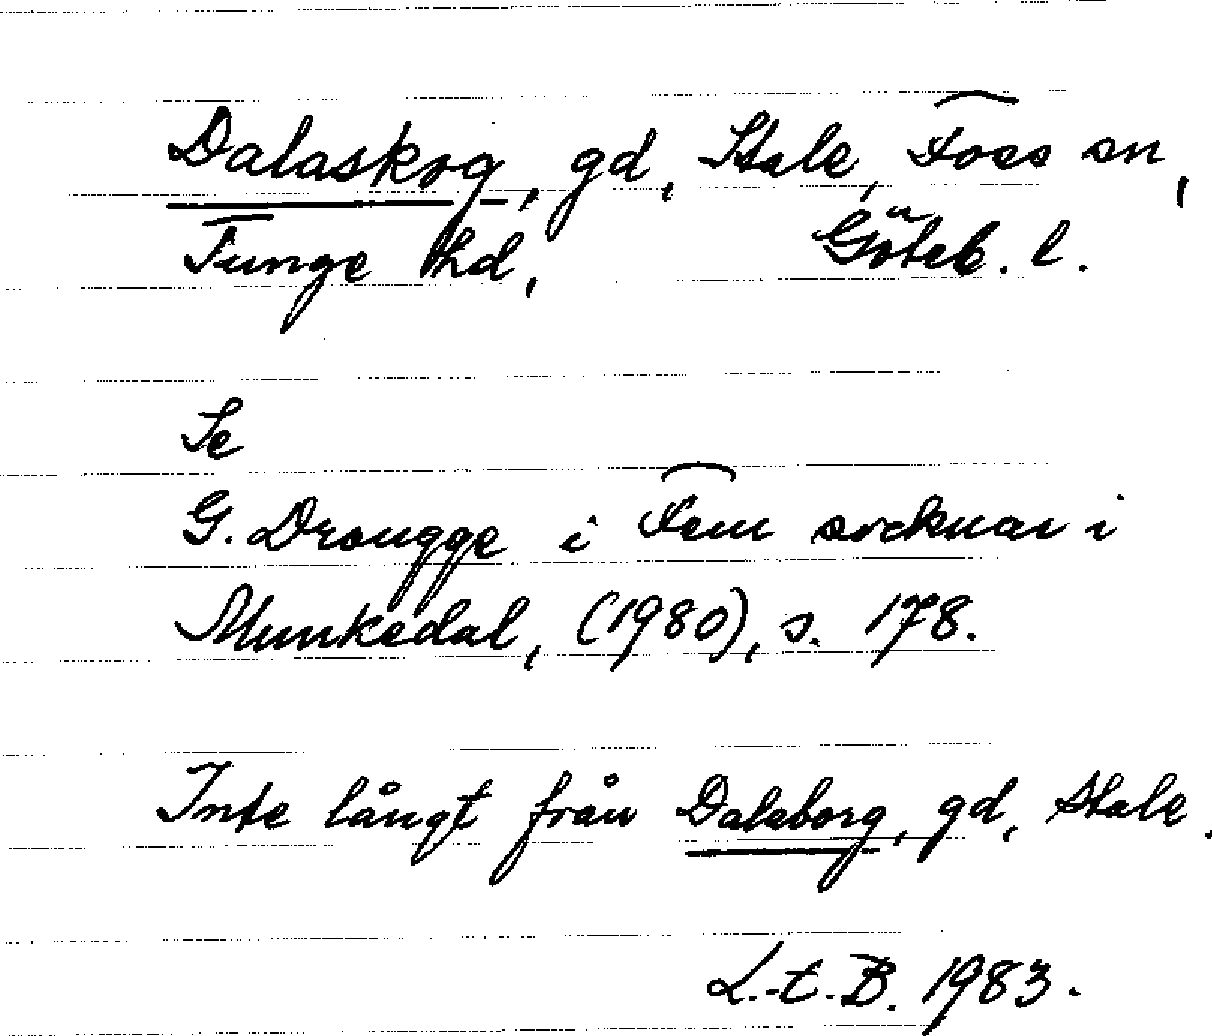 Dalaskog, gd, Stale, Foss sn,
Tunge hd, Göteb. l.
Se
G. Drougge i Fem socknar i
Munkedal, (1980), s. 178.
Inte långt från Dalaborg, gd, Stale.
L.-t. B. 1983.